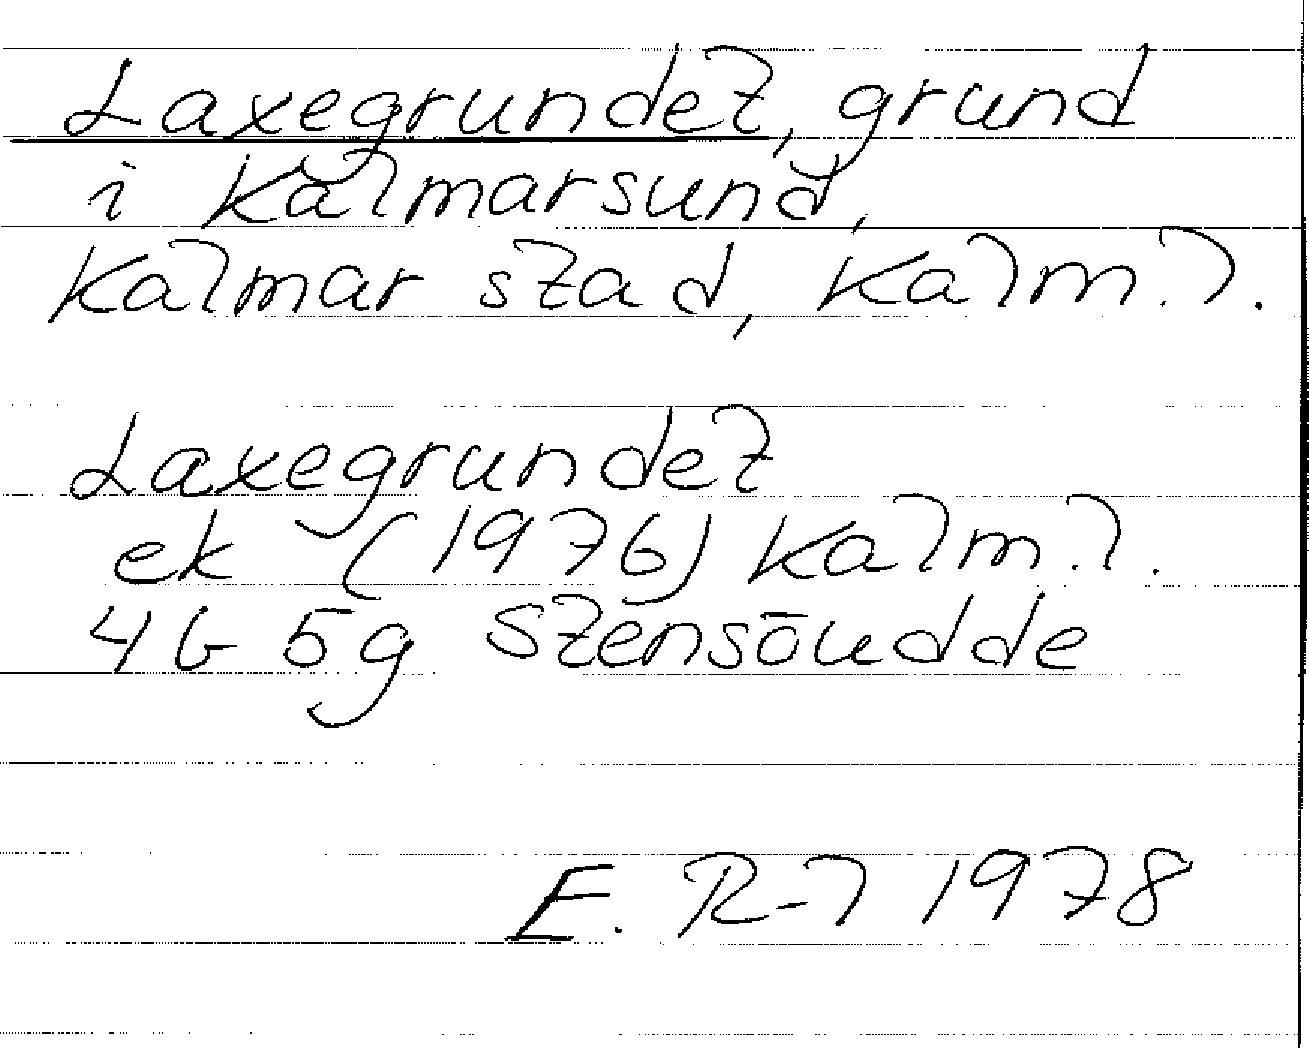 Laxegrundet, grund
i Kalmarsund,
Kalmar stad, Kalm. l.
Laxegrundet
ek (1976) Kalm. l.
4G 5g Stensöudde
E. R-l 1978